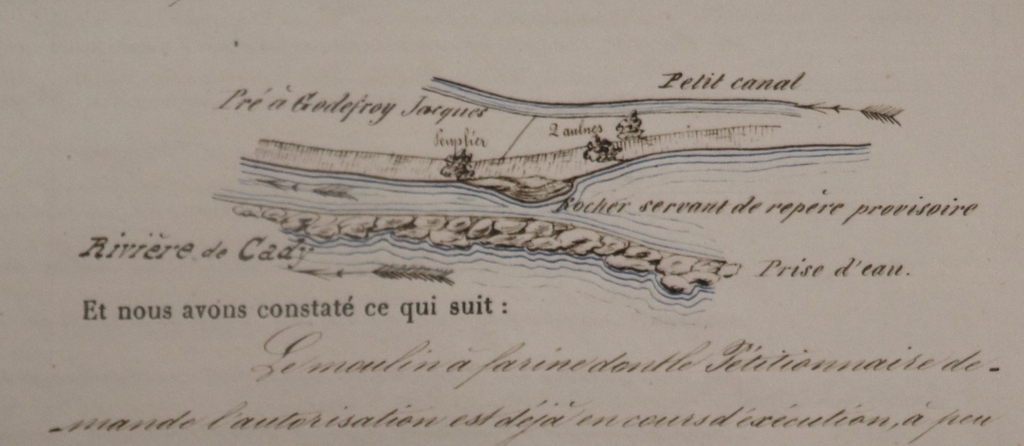 Petit canal
Pré à Godefroy Jacques
2 aulnes
Peuplier
Rocher servant de repère provisoire
Rivière de Cady
Prise d'eau.
Et nous avons constaté ce qui suit :
Le moulin à farine dont le Pétitionnaire de-
-mande l'autorisation est déjà en cours d'exécution, à peu